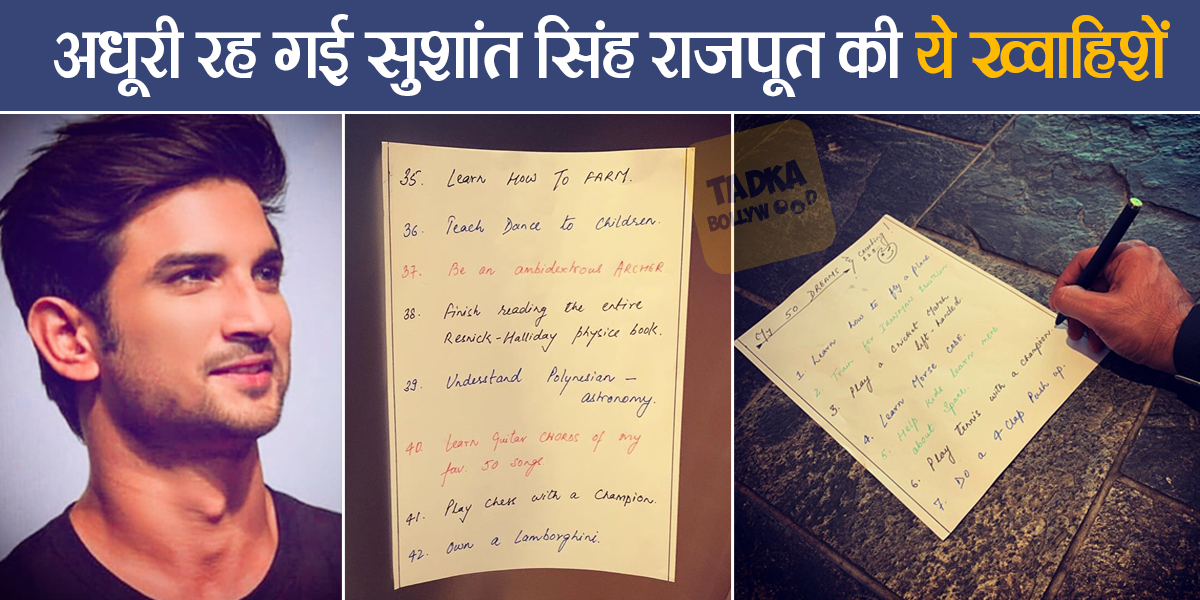 अधूरी रह गई सुशांत सिंह राजपूत की ये ख्वाहिशें
35. Learn HOW TO FARM.
36. Teach Dance to Children.
37. Be an ambidextrous ARCHER
38. Finish reading the entire
Resnick-Halliday physics book.
39. Understand Polynesian -
astronomy.
40. Learn Guitar CHORDS of my
fav. 50 songs.
41. Play Chess with a Champion.
42. Own a Lamborghini.
TADKA
BOLLYWOOD
My 50 DREAMS & counting!
1. Learn how to fly a plane
2. Train for IRONMAN triathlon
3. Play a Cricket Match
left-handed
4. Learn Morse Code.
5. Help kids learn
about Space.
6. Play tennis with a champion
7. Do a 4-Clap Push up.